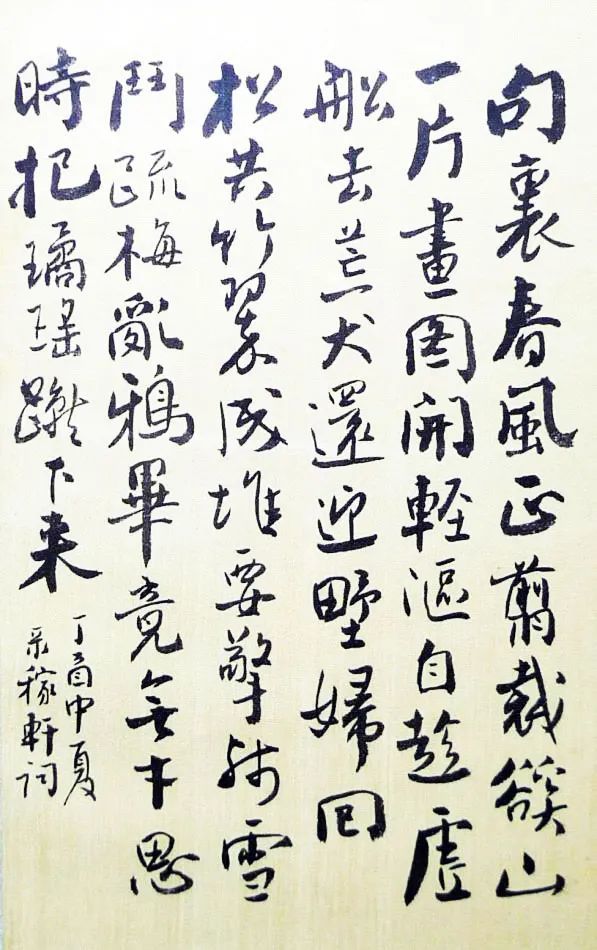 句裏春風正翦裁谿山
一片畫图開輕漚自趁虛
船去荒犬還迎野婦回
松共竹翠成堆要擎残雪
鬥疏梅亂鴉畢竟無才思
時把璚瑶蹴下来
丁酉中夏
采稼軒词